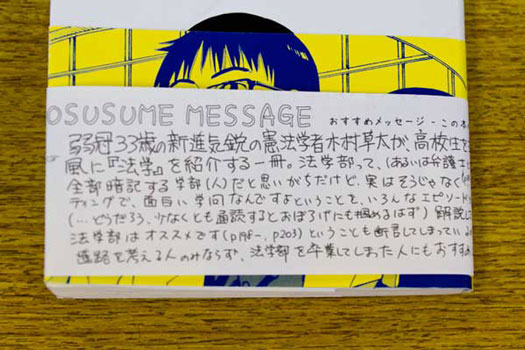 OSUSUME MESSAGE おすすめメッセージ - この本
弱冠33歳の新進気鋭の憲法学者木村草太が、高校生を
風に『法学』を紹介する一冊。法学部って、(あるいは弁護士
全部暗記する学部(人)だと思いがちだけど、実はそうじゃなく
ティングで、面白い学問なんですよということを、いろんなエピソード
(…どうだろう、少なくとも通読するとおぼろげにも掴めるはず) 解説し
法学部はオススメです(p198-, p203)ということも断言してしまっている
進路を考える人のみならず、法学部を卒業してしまった人にもおすすめ